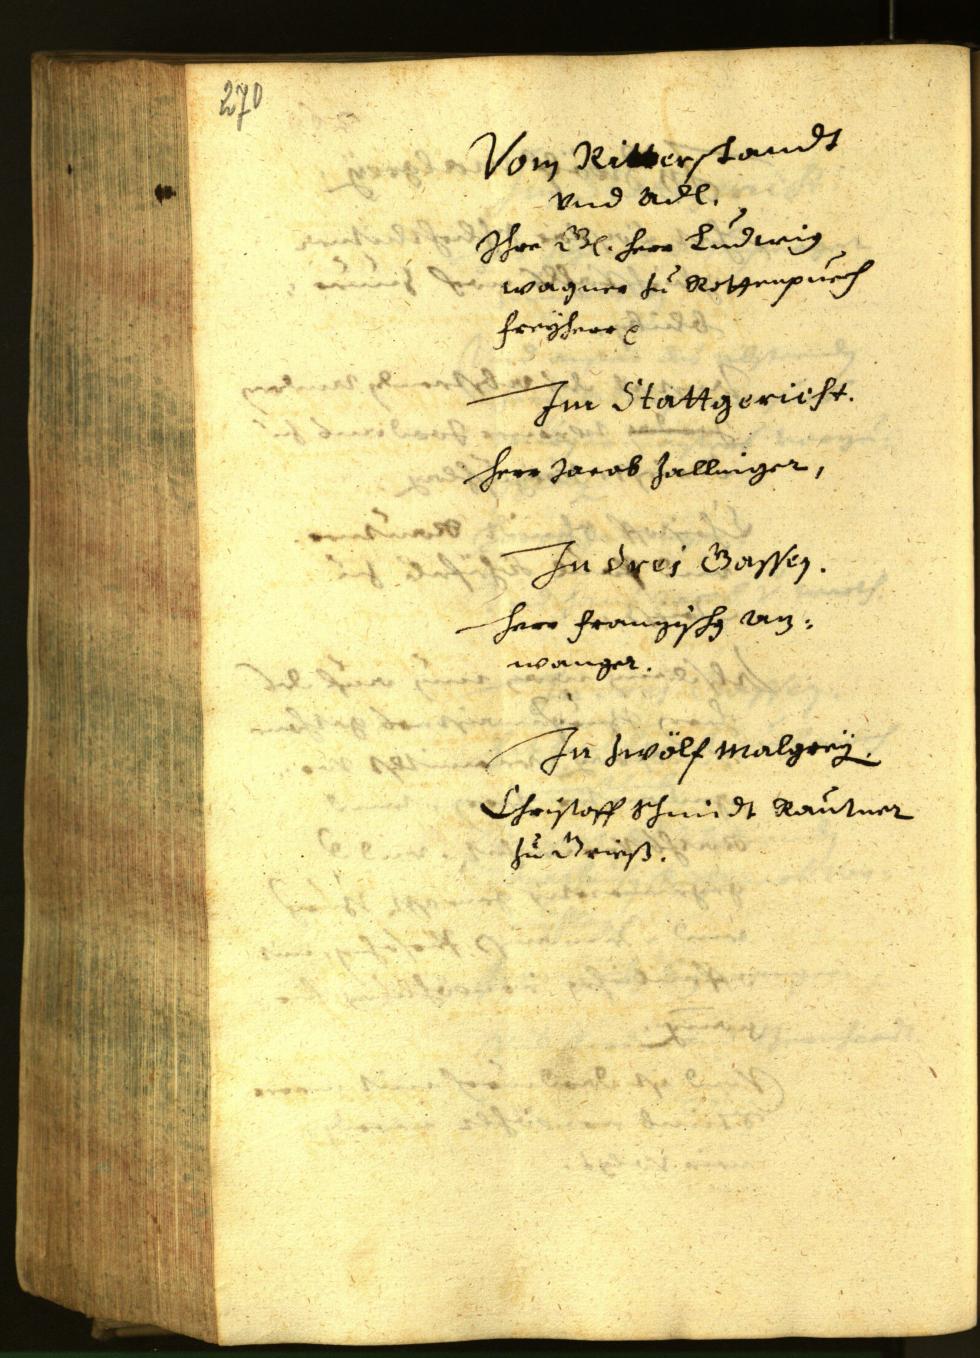 270
Vom Ritterstandt
vnd Adl.
Ihre Gl. herr Ludwig
wagner zu Rottenpuech
freyherr
Im Stattgericht.
herr Jacob Zallinger,
In drej Gassen.
herr Franzisch
wanger.
In Zwölf Malgreÿ.
Christoff Schmidt Rautner
zu Grieß.